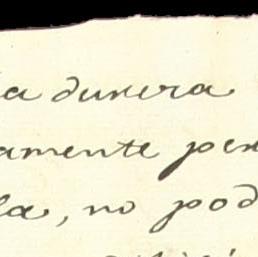 a dunera
amente pen
la, no pod